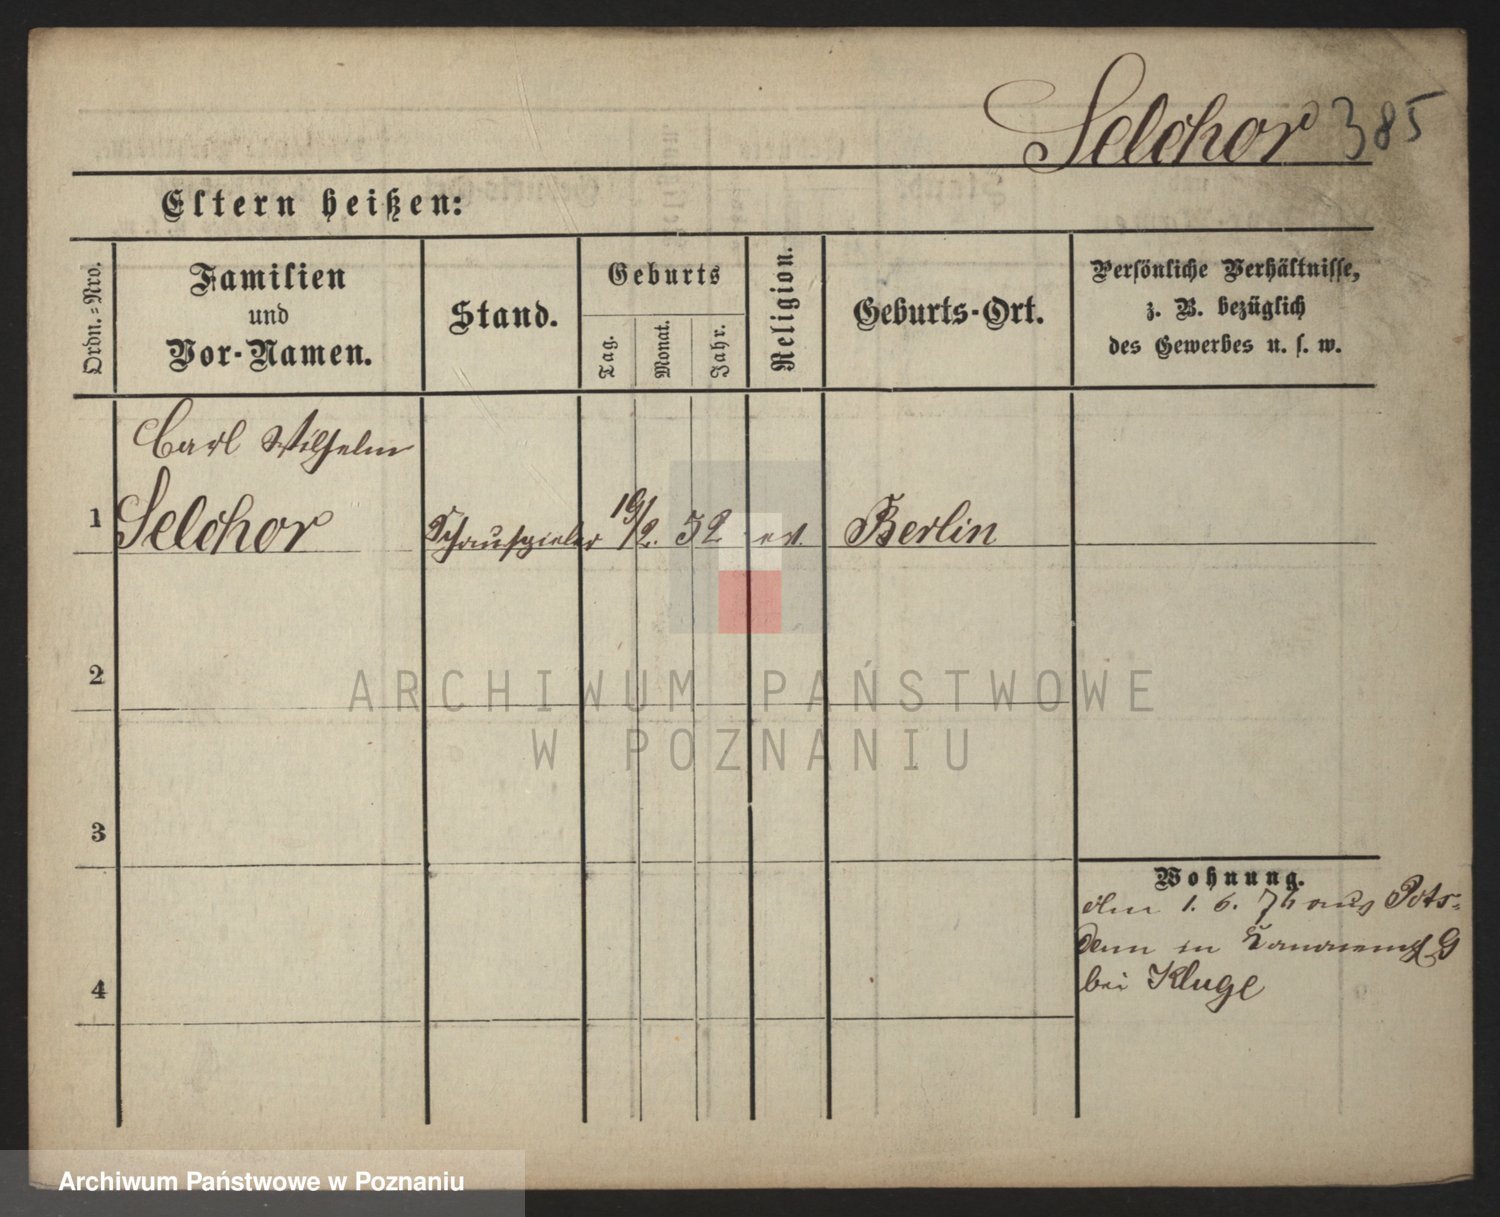 Selchor 385
Eltern heißen:
Ordn.-Nro.
Familien
und
Vor-Namen.
Stand.
Geburts
Tag.
Monat.
Jahr.
Religion.
Geburts-Ort.
Persönliche Verhältnisse,
z. B. bezüglich
des Gewerbes u. s. w.
Carl Wilhelm
1 Selchor Schauspieler 19/2. 52 ev. Berlin
2
3
4
Wohnung.
1. 6. 76 aus Pots-
dam in
bei Kluge
ARCHIWUM PAŃSTWOWE
W POZNANIU
Archiwum Państwowe w Poznaniu